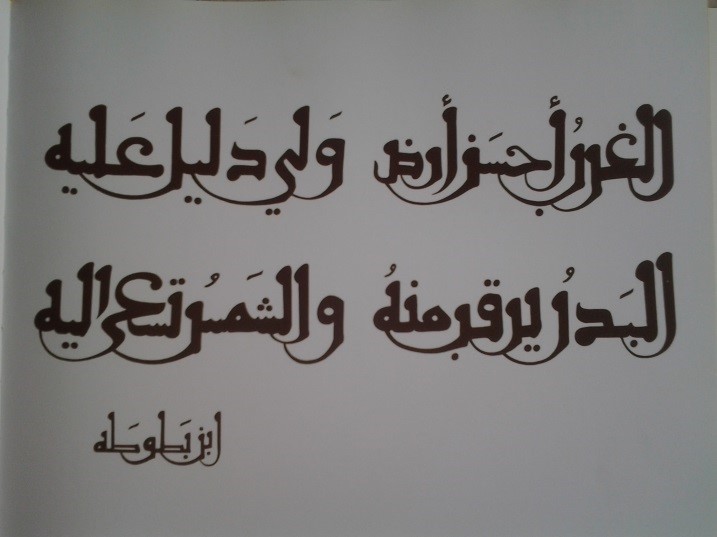 الغربُ أحسن أرض وَلي دَليل عَليه
البَدرُ يرقب منهُ والشَمسُ تسعى اليه
ابن بَطوطَه